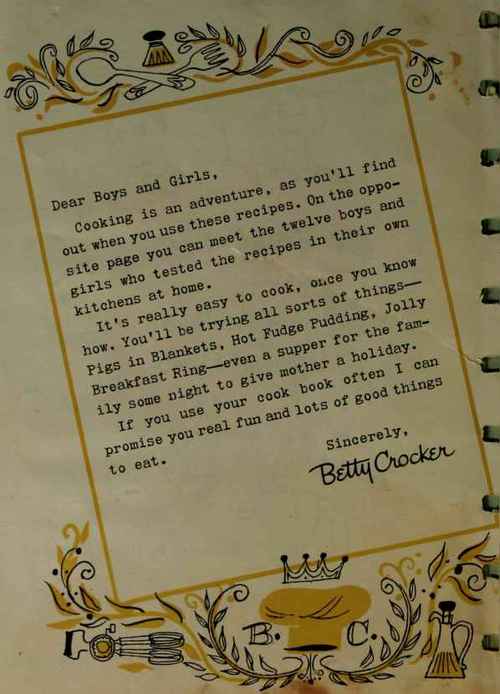 Dear Boys and Girls,
Cooking is an adventure, as you'll find
out when you use these recipes. On the oppo-
site page you can meet the twelve boys and
girls who tested the recipes in their own
kitchens at home.
It's really easy to cook, once you know
how. You'll be trying all sorts of things—
Pigs in Blankets, Hot Fudge Pudding, Jolly
Breakfast Ring—even a supper for the fam-
ily some night to give mother a holiday.
If you use your cook book often I can
promise you real fun and lots of good things
to eat.
Sincerely,
Betty Crocker
B. C.